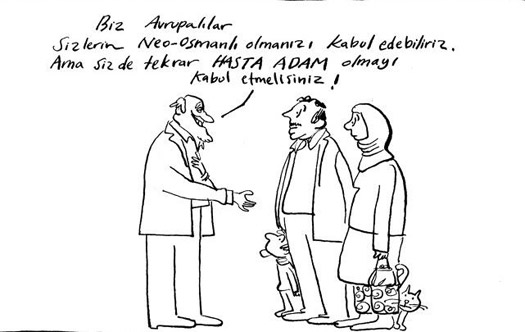 Biz Avrupalılar
sizlerin Neo-Osmanlı olmanızı kabul edebiliriz.
Ama siz de tekrar HASTA ADAM olmayı
kabul etmelisiniz!